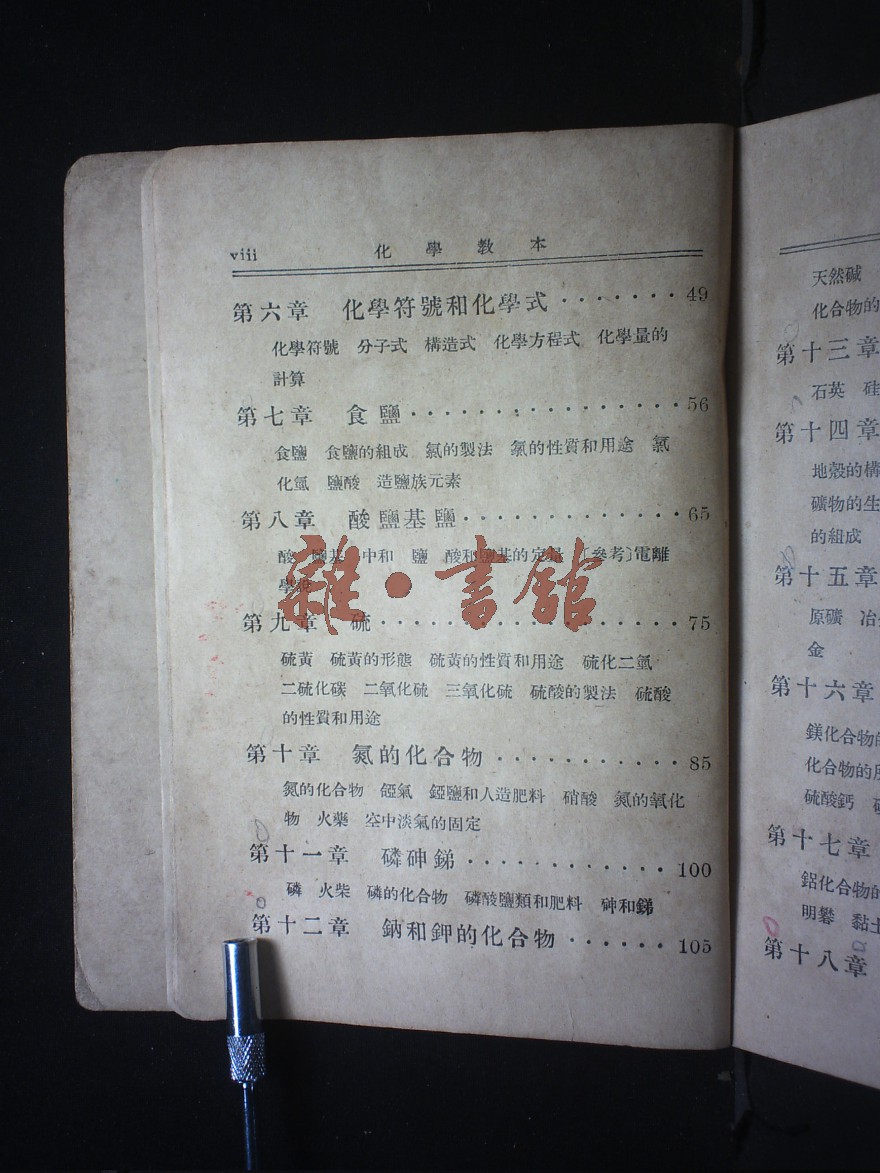 viii 化學教本
第六章 化學符號和化學式 · · · · · · · 49
化學符號 分子式 構造式 化學方程式 化學量的
計算
第七章 食鹽 · · · · · · · · · · · · · · · · 56
食鹽 食鹽的組成 氯的製法 氯的性質和用途 氯
化氫 鹽酸 造鹽族元素
第八章 酸鹽基鹽 · · · · · · · · · · · · · 65
酸 鹽基 中和 鹽 酸和鹽基的定量 〔參考〕電離
學說
第九章 硫 · · · · · · · · · · · · · · · · · · 75
硫黃 硫黃的形態 硫黃的性質和用途 硫化二氫
二硫化碳 二氧化硫 三氧化硫 硫酸的製法 硫酸
的性質和用途
第十章 氮的化合物 · · · · · · · · · · · 85
氮的化合物 錏氣 錏鹽和人造肥料 硝酸 氮的氧化
物 火藥 空中淡氣的固定
第十一章 磷砷銻 · · · · · · · · · · · · 100
磷 火柴 磷的化合物 磷酸鹽類和肥料 砷和銻
第十二章 鈉和鉀的化合物 · · · · · · 105
雜·書館
天然碱
化合物的
第十三章
石英 硅
第十四章
地殼的構
礦物的生
的組成
第十五章
原礦 冶
金
第十六章
鎂化合物的
化合物的
硫酸鈣
第十七章
鋁化合物的
明礬 黏土
第十八章